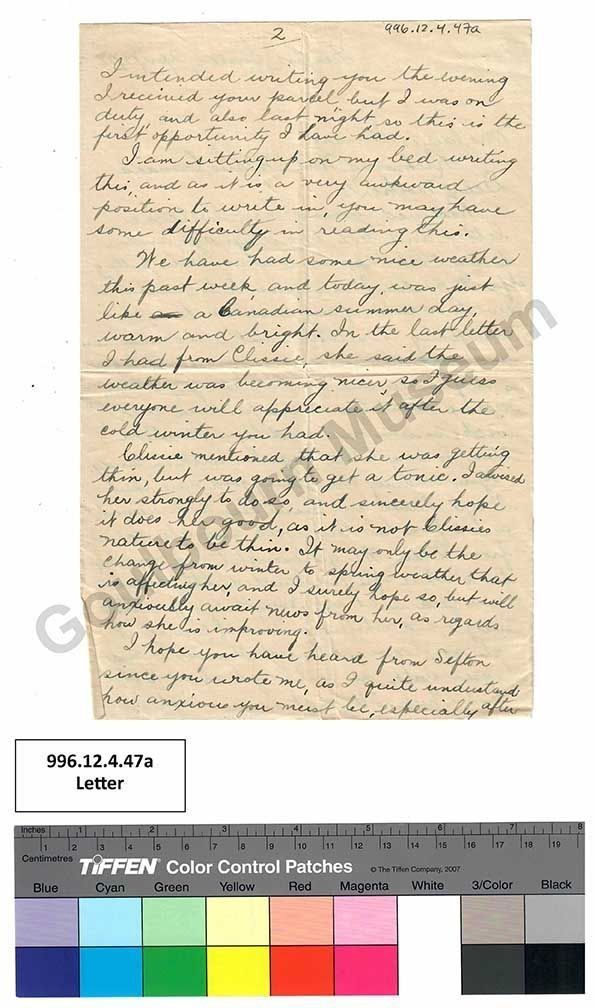 2
996.12.4.47a
I intended writing you the evening
I received your parcel, but I was on
duty, and also last night so this is the
first opportunity I have had.
I am sitting up on my bed writing
this, and as it is a very awkward
position to write in, you may have
some difficulty in reading this.
We have had some nice weather
this past week and today, was just
like a Canadian summer day,
warm and bright. In the last letter
I had from Clissie, she said the
weather was becoming nicer, so I guess
everyone will appreciate it after the
cold winter you had.
Clissie mentioned that she was getting
thin, but was going to get a tonic. I advised
her strongly to do so, and sincerely hope
it does her good, as it is not Clissies
nature to be thin. It may only be the
change from winter to spring weather that
is affecting her, and I surely hope so, but will
anxiously await news from her, as regards
how she is improving.
I hope you have heard from Sefton
since you wrote me, as I quite understand
how anxious you must be, especially after
Goulbourn Museum
996.12.4.47a
Letter
Inches 1 2 3 4 5 6 7 8
Centimetres 1 2 3 4 5 6 7 8 9 10 11 12 13 14 15 16 17 18 19
TIFFEN Color Control Patches © The Tiffen Company, 2007
Blue Cyan Green Yellow Red Magenta White 3/Color Black